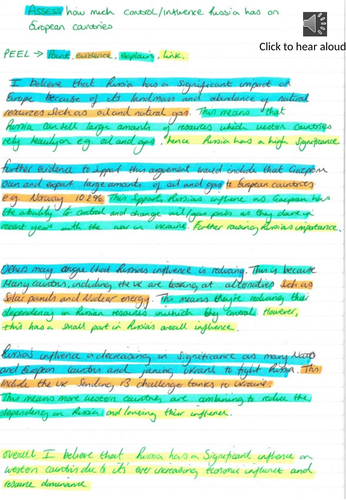 Assess how much control/influence Russia has on
European countries
Click to hear aloud
PEEL → Point, evidence, explain, link.
I believe that Russia has a significant impact on
Europe because of its landmass and abundance of natural
resources such as oil and natural gas. This means that
Russia can sell large amounts of resources which western countries
rely heavily on e.g. oil and gas. hence Russia has a high significance
Further evidence to support this argument would include that Gazprom
own and export large amounts of oil and gas to European countries
e.g. Norway 10.2%. This supports Russias influence as Gazprom has
the ability to control and change oil/gas prices as they done in
recent years with the war in ukraine. Further raising Russias importance.
Others may argue that Russias influence is reducing. This is because
Many countries, including the uk are looking at alternatives such as
Solar panels and Nuclear energy. This means they're reducing their
dependency on Russian resources which they control. However,
this has a small part in Russias overall influence.
Russia's influence is decreasing in significance as many NATO
and European countries and joining ukraine to fight Russia. This
include the uk sending 13 challenger tanks to ukraine.
This means more western countries are combining to reduce the
dependency on Russia and lowering their influence.
overall I believe that Russia has a significant influence on
western countries due to it's ever increasing economic influence and
resource dominance.